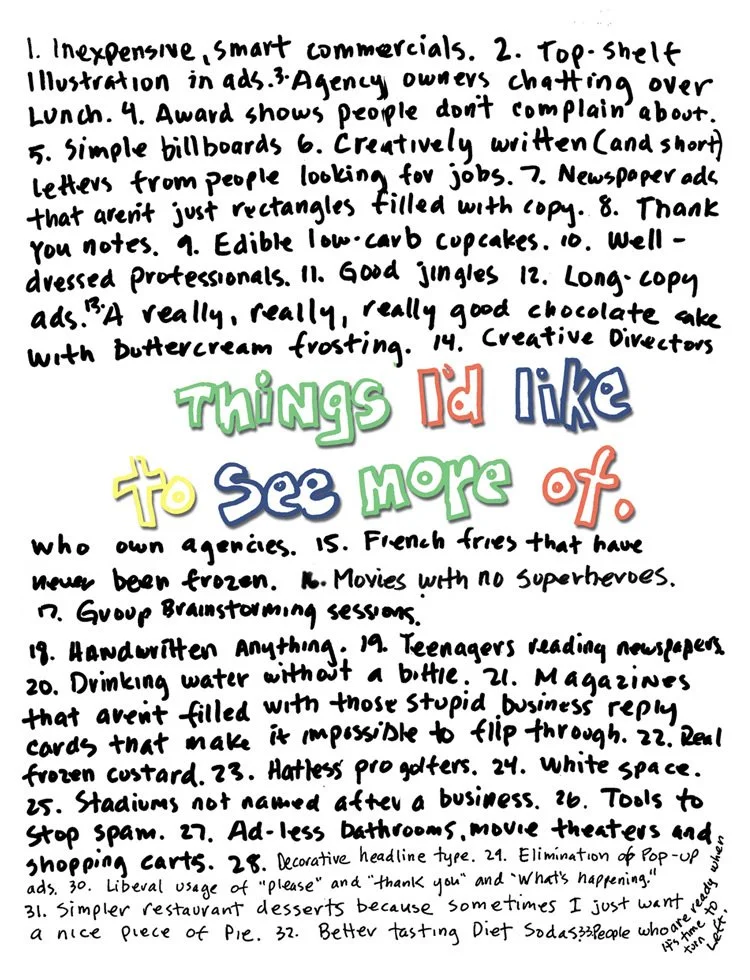 1. Inexpensive, smart commercials. 2. Top-shelf
Illustration in ads. 3. Agency owners chatting over
Lunch. 4. Award shows people don't complain about.
5. Simple billboards 6. Creatively written (and short)
letters from people looking for jobs. 7. Newspaper ads
that aren't just rectangles filled with copy. 8. Thank
You notes. 9. Edible low-carb cupcakes. 10. Well-
dressed professionals. 11. Good jingles 12. Long-copy
ads. 13. A really, really, really good chocolate cake
with buttercream frosting. 14. Creative Directors
Things I'd like
to see more of.
who own agencies. 15. French fries that have
never been frozen. 16. Movies with no superheroes.
17. Group Brainstorming sessions.
18. Handwritten Anything. 19. Teenagers reading newspapers.
20. Drinking water without a bottle. 21. Magazines
that aren't filled with those stupid business reply
cards that make it impossible to flip through. 22. Real
frozen custard. 23. Hatless pro golfers. 24. White space.
25. Stadiums not named after a business. 26. Tools to
stop spam. 27. Ad-less bathrooms, movie theaters and
shopping carts. 28. Decorative headline type. 29. Elimination of Pop-up
ads. 30. Liberal usage of "please" and "thank you" and "What's happening."
31. Simpler restaurant desserts because sometimes I just want
a nice piece of Pie. 32. Better tasting Diet Sodas. 33. People who
are ready when
it's time to
turn left.